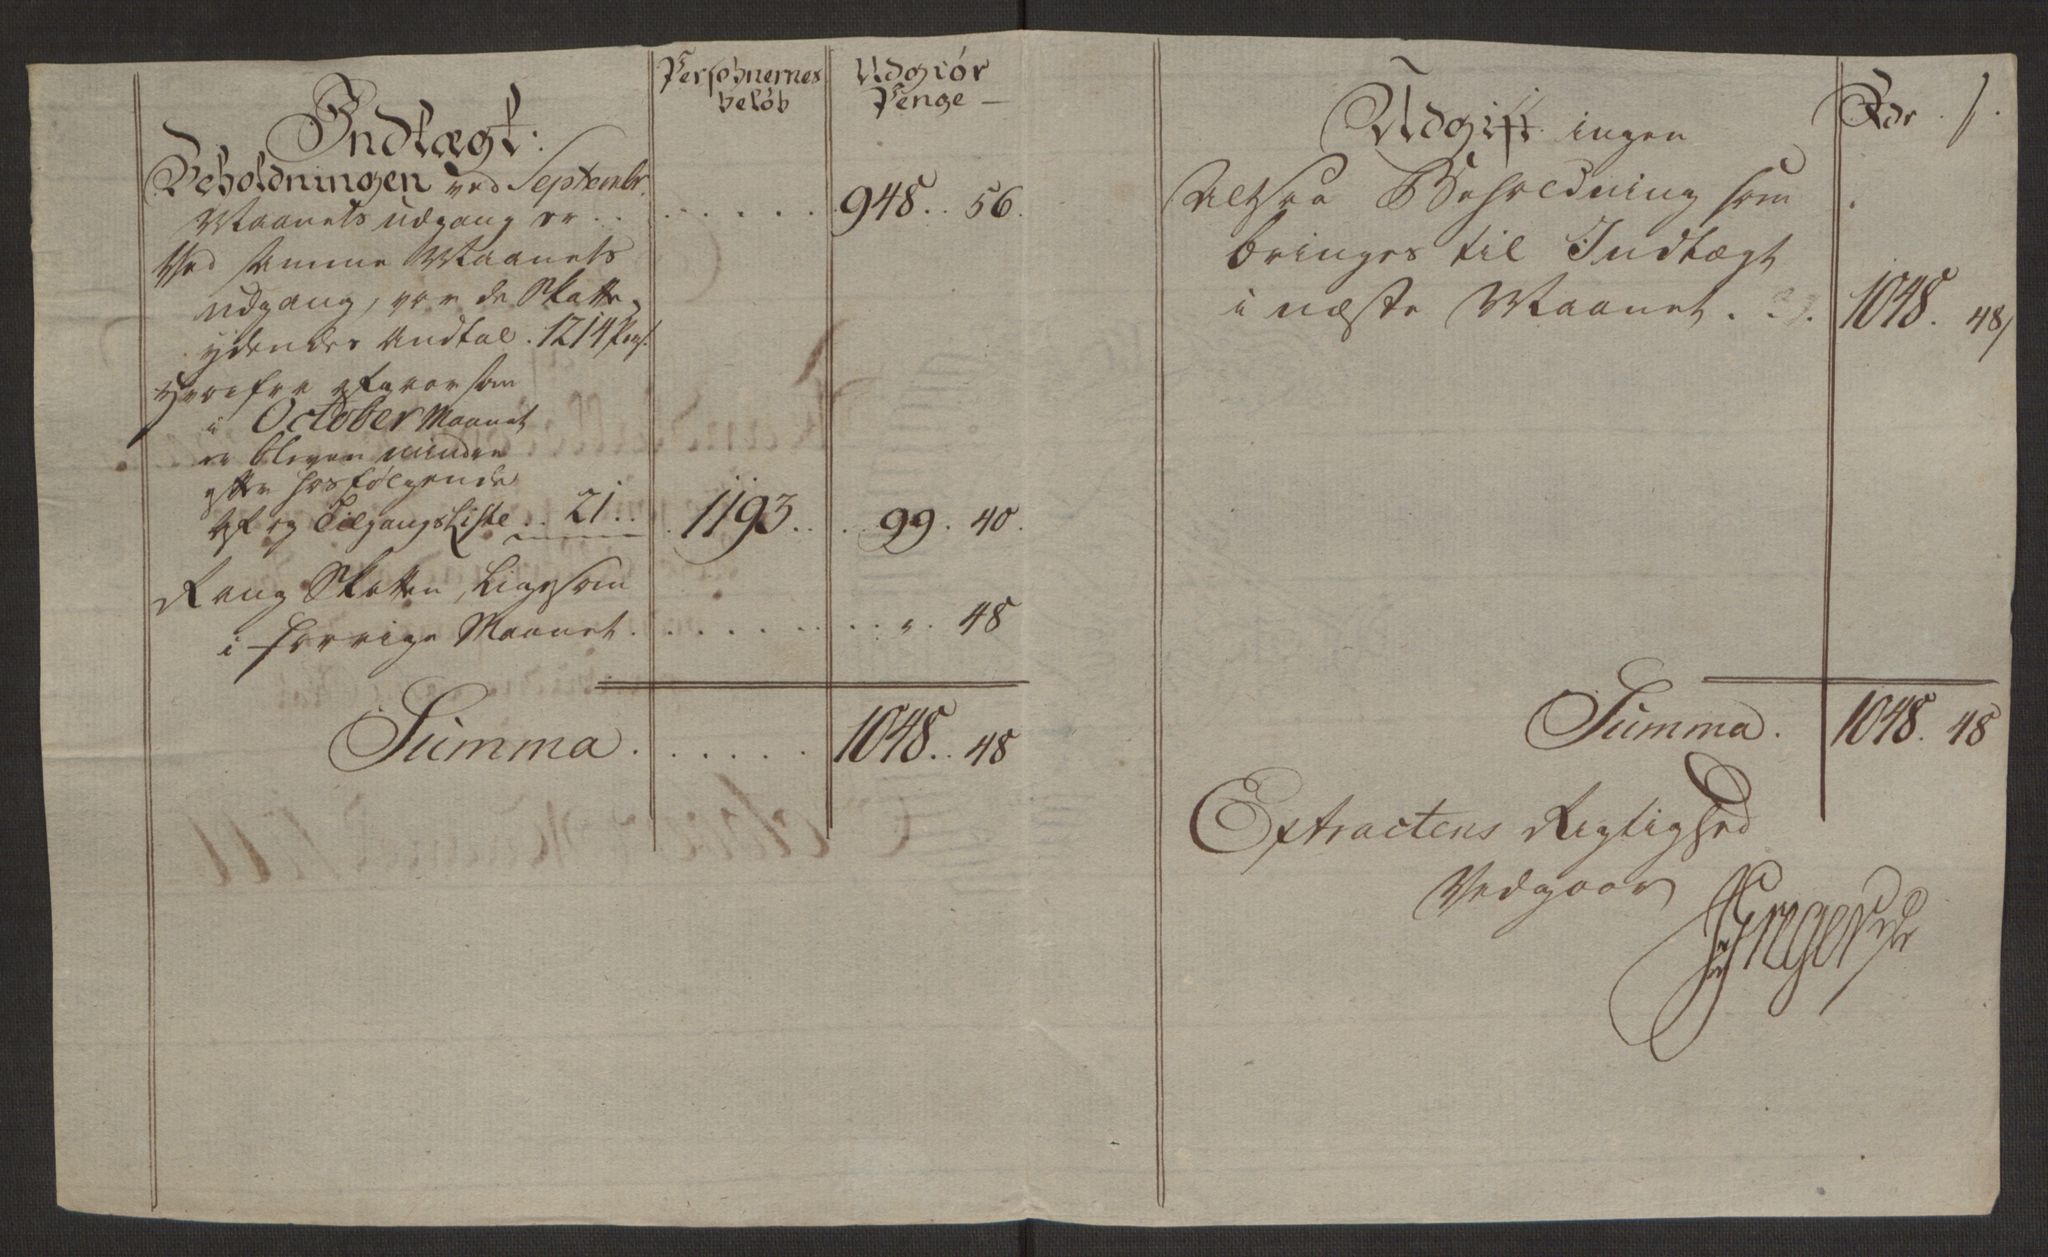 Indtægt:
Persohnernes
beløb
Udgiør
Penge —
Beholdningen ved Septembr.
Maanets udgang er . . . . . . . . 948. . 56.
Ved samme Maanets
udgang, var de Skatte-
ydendes Andtal . 1214 Pers:
Herefra afgaar som
i October Maanet
er bleven mindre
efter hosfølgende
Af og TilgangsListe . . 21 . . . 1193 . . . . 99 . 40.
Rang Skatten, Ligesom
i forrige Maanet . . . . . . . . „ . 48
Summa . . . . . . . 1048. . 48
Udgift ingen
Rdr . ſ.
Altsaa Beholdning som
bringes til Indtægt
i næste Maanet . . . 1048. 48ſ
Summa . 1048. 48
Extractens Rigtighed
Vedgaaer